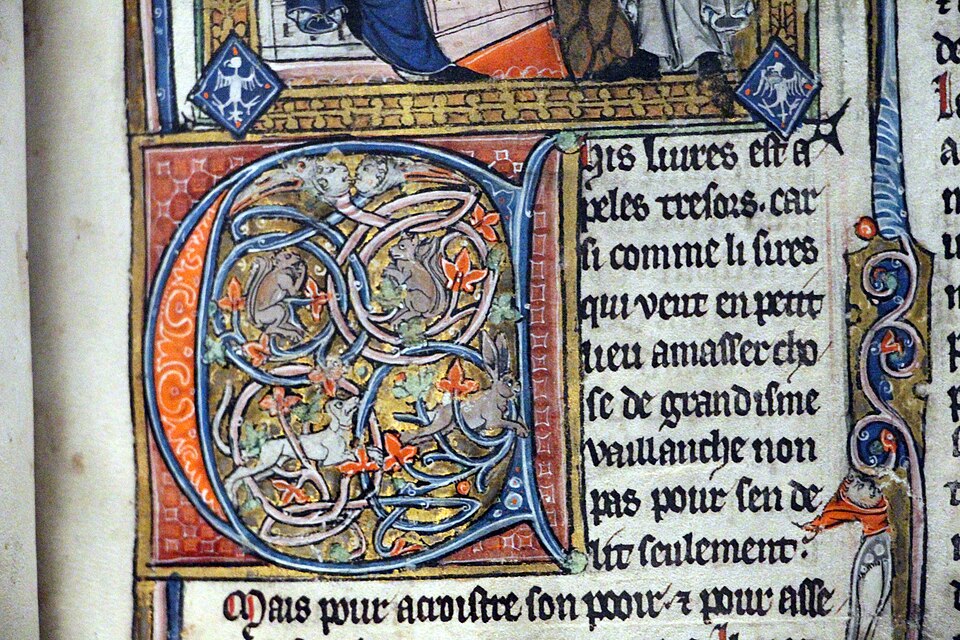 C
his liures est a
peles tresors. car
si comme li sires
qui veut en petit
lieu amasser cho
se de grandisme
vaillanche non
pas pour sen de
lit seulement.
Mais pour acroistre son pooir ⁊ pour asse